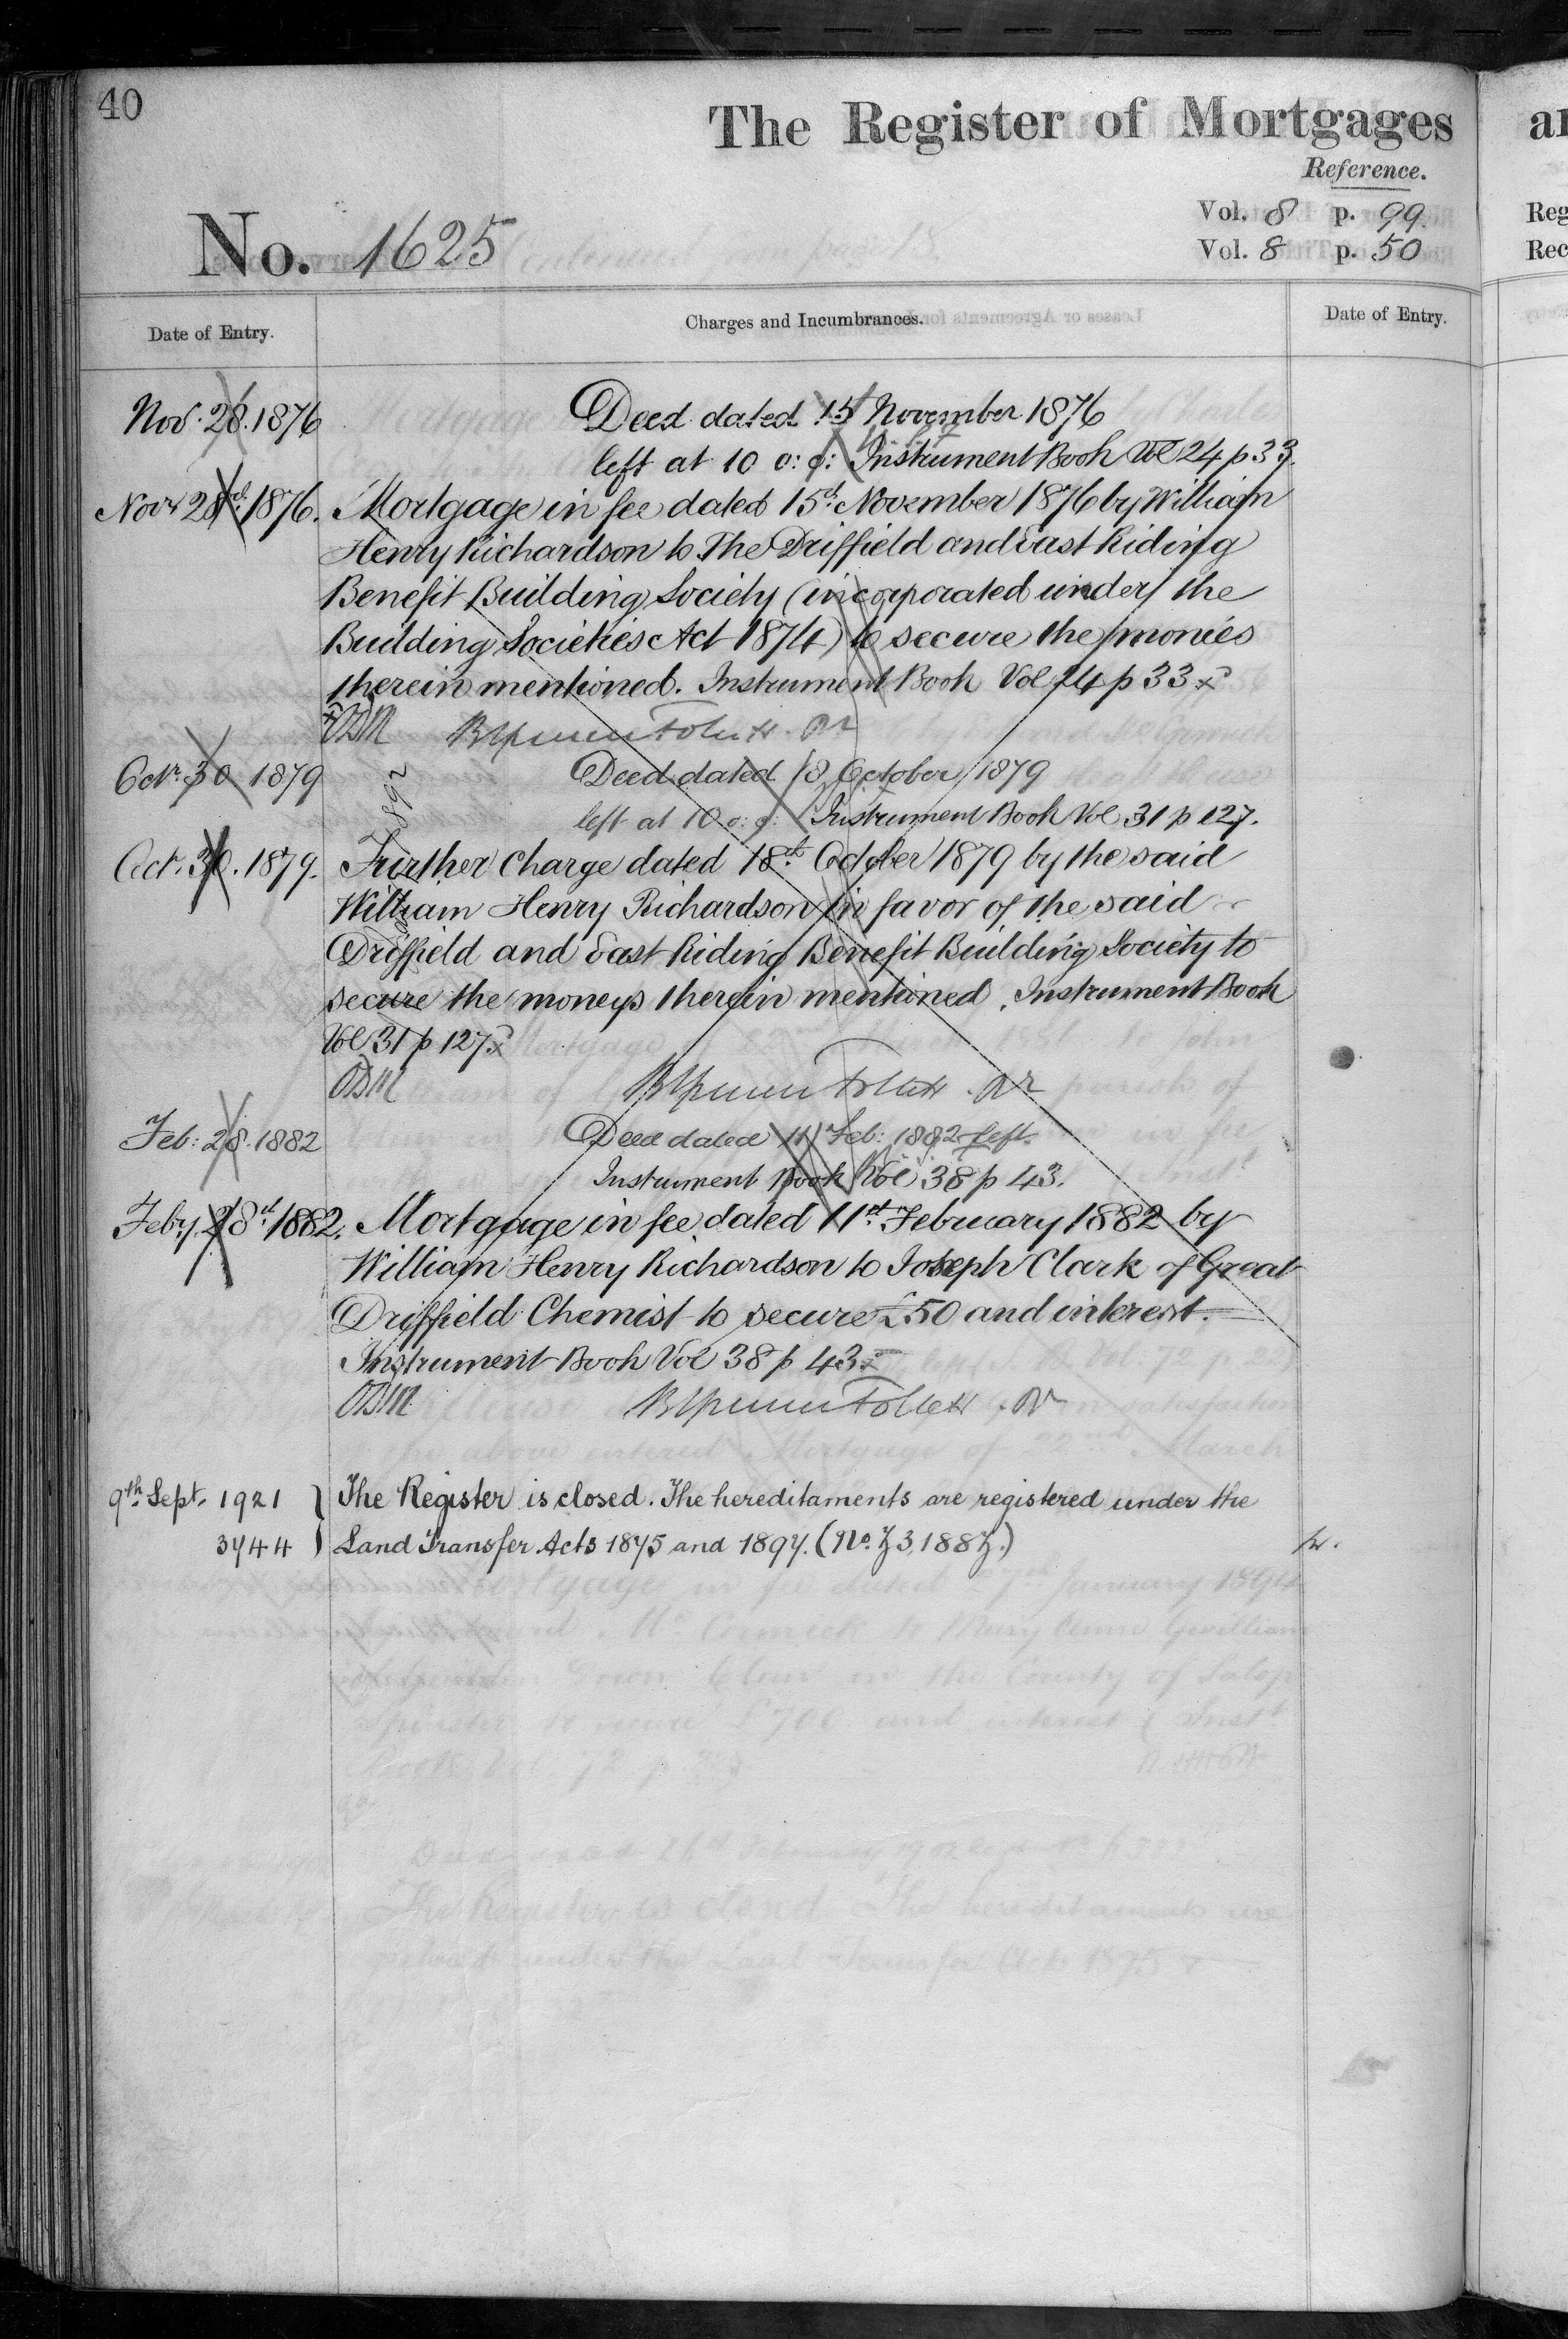 40
The Register of Mortgages
Reference.
No. 1625
Vol. 8 p. 99.
Vol. 8 p. 50
Date of Entry.
Charges and Incumbrances.
Date of Entry.
Nov. 28. 1876
Deed dated 15 November 1876
left at 10 o: c: Instrument Book Vol 24 p 33.
Novr 28th 1876. Mortgage in fee dated 15th November 1876 by William
Henry Richardson to The Driffield and East Riding
Benefit Building Society (incorporated under the
Building Societies Act 1874) to secure the monies
therein mentioned. Instrument Book Vol 24 p 33
Octr 30 1879
Deed dated 18 October 1879
left at 10 o: c: Instrument Book Vol 31 p 127.
Oct. 30. 1879. Further Charge dated 18th October 1879 by the said
William Henry Richardson in favor of the said
Driffield and East Riding Benefit Building Society to
secure the moneys therein mentioned. Instrument Book
Vol 31 p 127
Feb: 28. 1882
Deed dated 11 Feb: 1882 left
Instrument Book Vol 38 p 43.
Feby. 28th 1882. Mortgage in fee dated 11th February 1882 by
William Henry Richardson to Joseph Clark of Great
Driffield Chemist to secure £50 and interest.
Instrument Book Vol 38 p 43
9th Sept. 1921 } The Register is closed. The hereditaments are registered under the
3744 Land Transfer Acts 1875 and 1897. (No.
ar
Reg
Rec